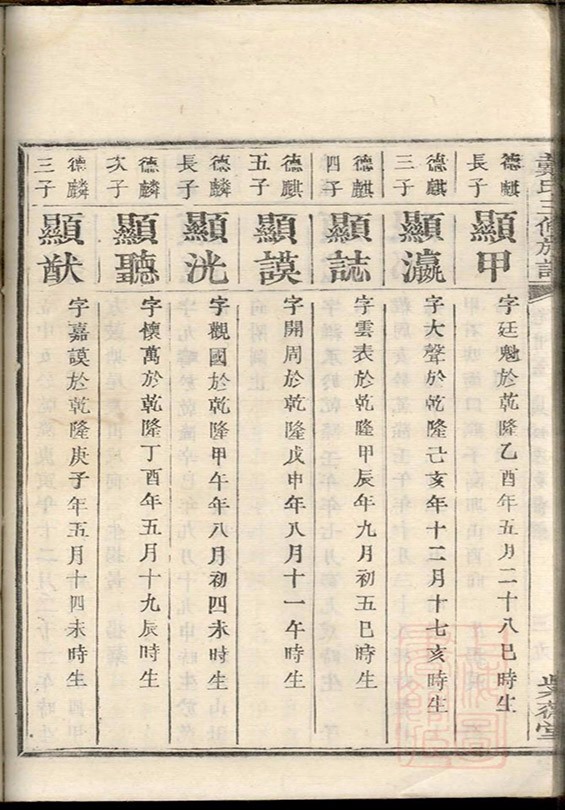 戴氏三修族譜
德麒
長子
顯甲
字廷魁於乾隆乙酉年五月二十八巳時生
德麒
三子
顯瀛
字大聲於乾隆己亥年十二月十七亥時生
德麒
四子
顯誌
字雲表於乾隆甲辰年九月初五巳時生
德麒
五子
顯謨
字開周於乾隆戊申年八月十一午時生
德麟
長子
顯洸
字觀國於乾隆甲午年八月初四未時生
德麟
次子
顯聽
字懷萬於乾隆丁酉年五月十九辰時生
德麟
三子
顯猷
字嘉謨於乾隆庚子年五月十四未時生